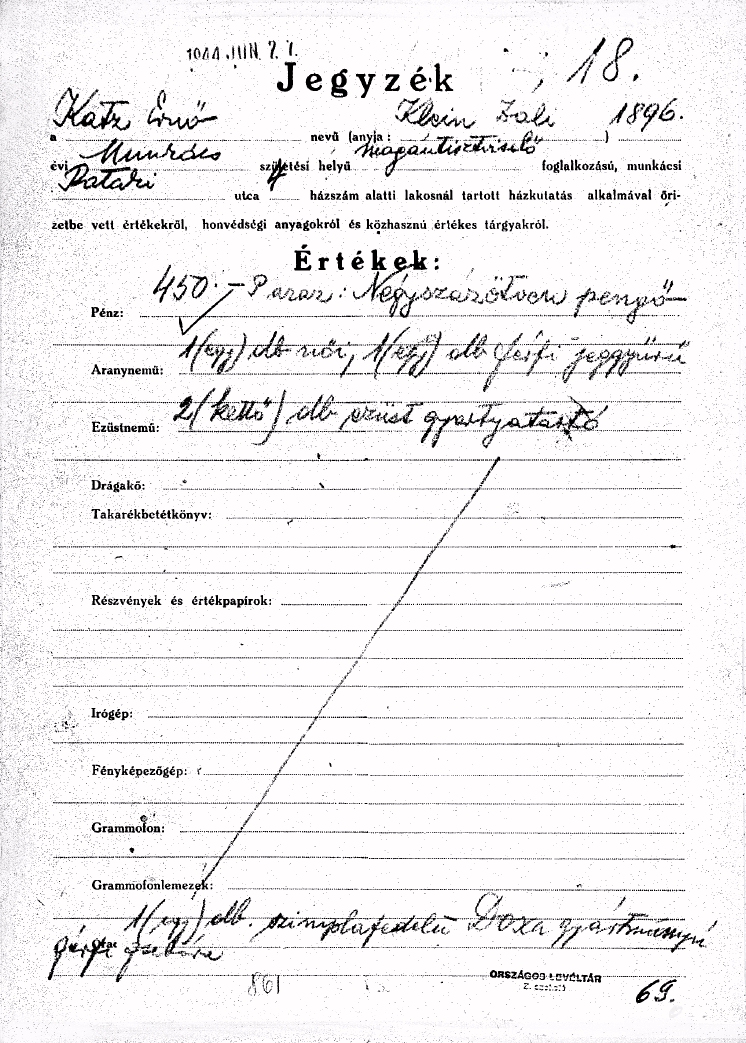 1944 JUN. 7.
18.
Jegyzék
Katz Ernő Klein Zali 1896.
a nevű (anyja: )
Munkács magántisztviselő
évi születési helyű foglalkozású, munkácsi
4
utca házszám alatti lakosnál tartott házkutatás alkalmával őri-
zetbe vett értékekről, honvédségi anyagokról és közhasznú értékes tárgyakról.
Értékek:
450.- Négyszázötven pengő
Pénz:
1(egy) db női, 1(egy) db férfi jeggyűrű
Aranynemű:
2(kettő) db ezüst gyertyatartó
Ezüstnemű:
Drágakő:
Takarékbetétkönyv:
Részvények és értékpapírok:
Irógép:
Fényképezőgép:
Grammofon:
Grammofonlemezek:
1(egy) db. szimplafedelű Doxa gyártmányú
férfi
861
ORSZÁGOS LEVÉLTÁR
69.